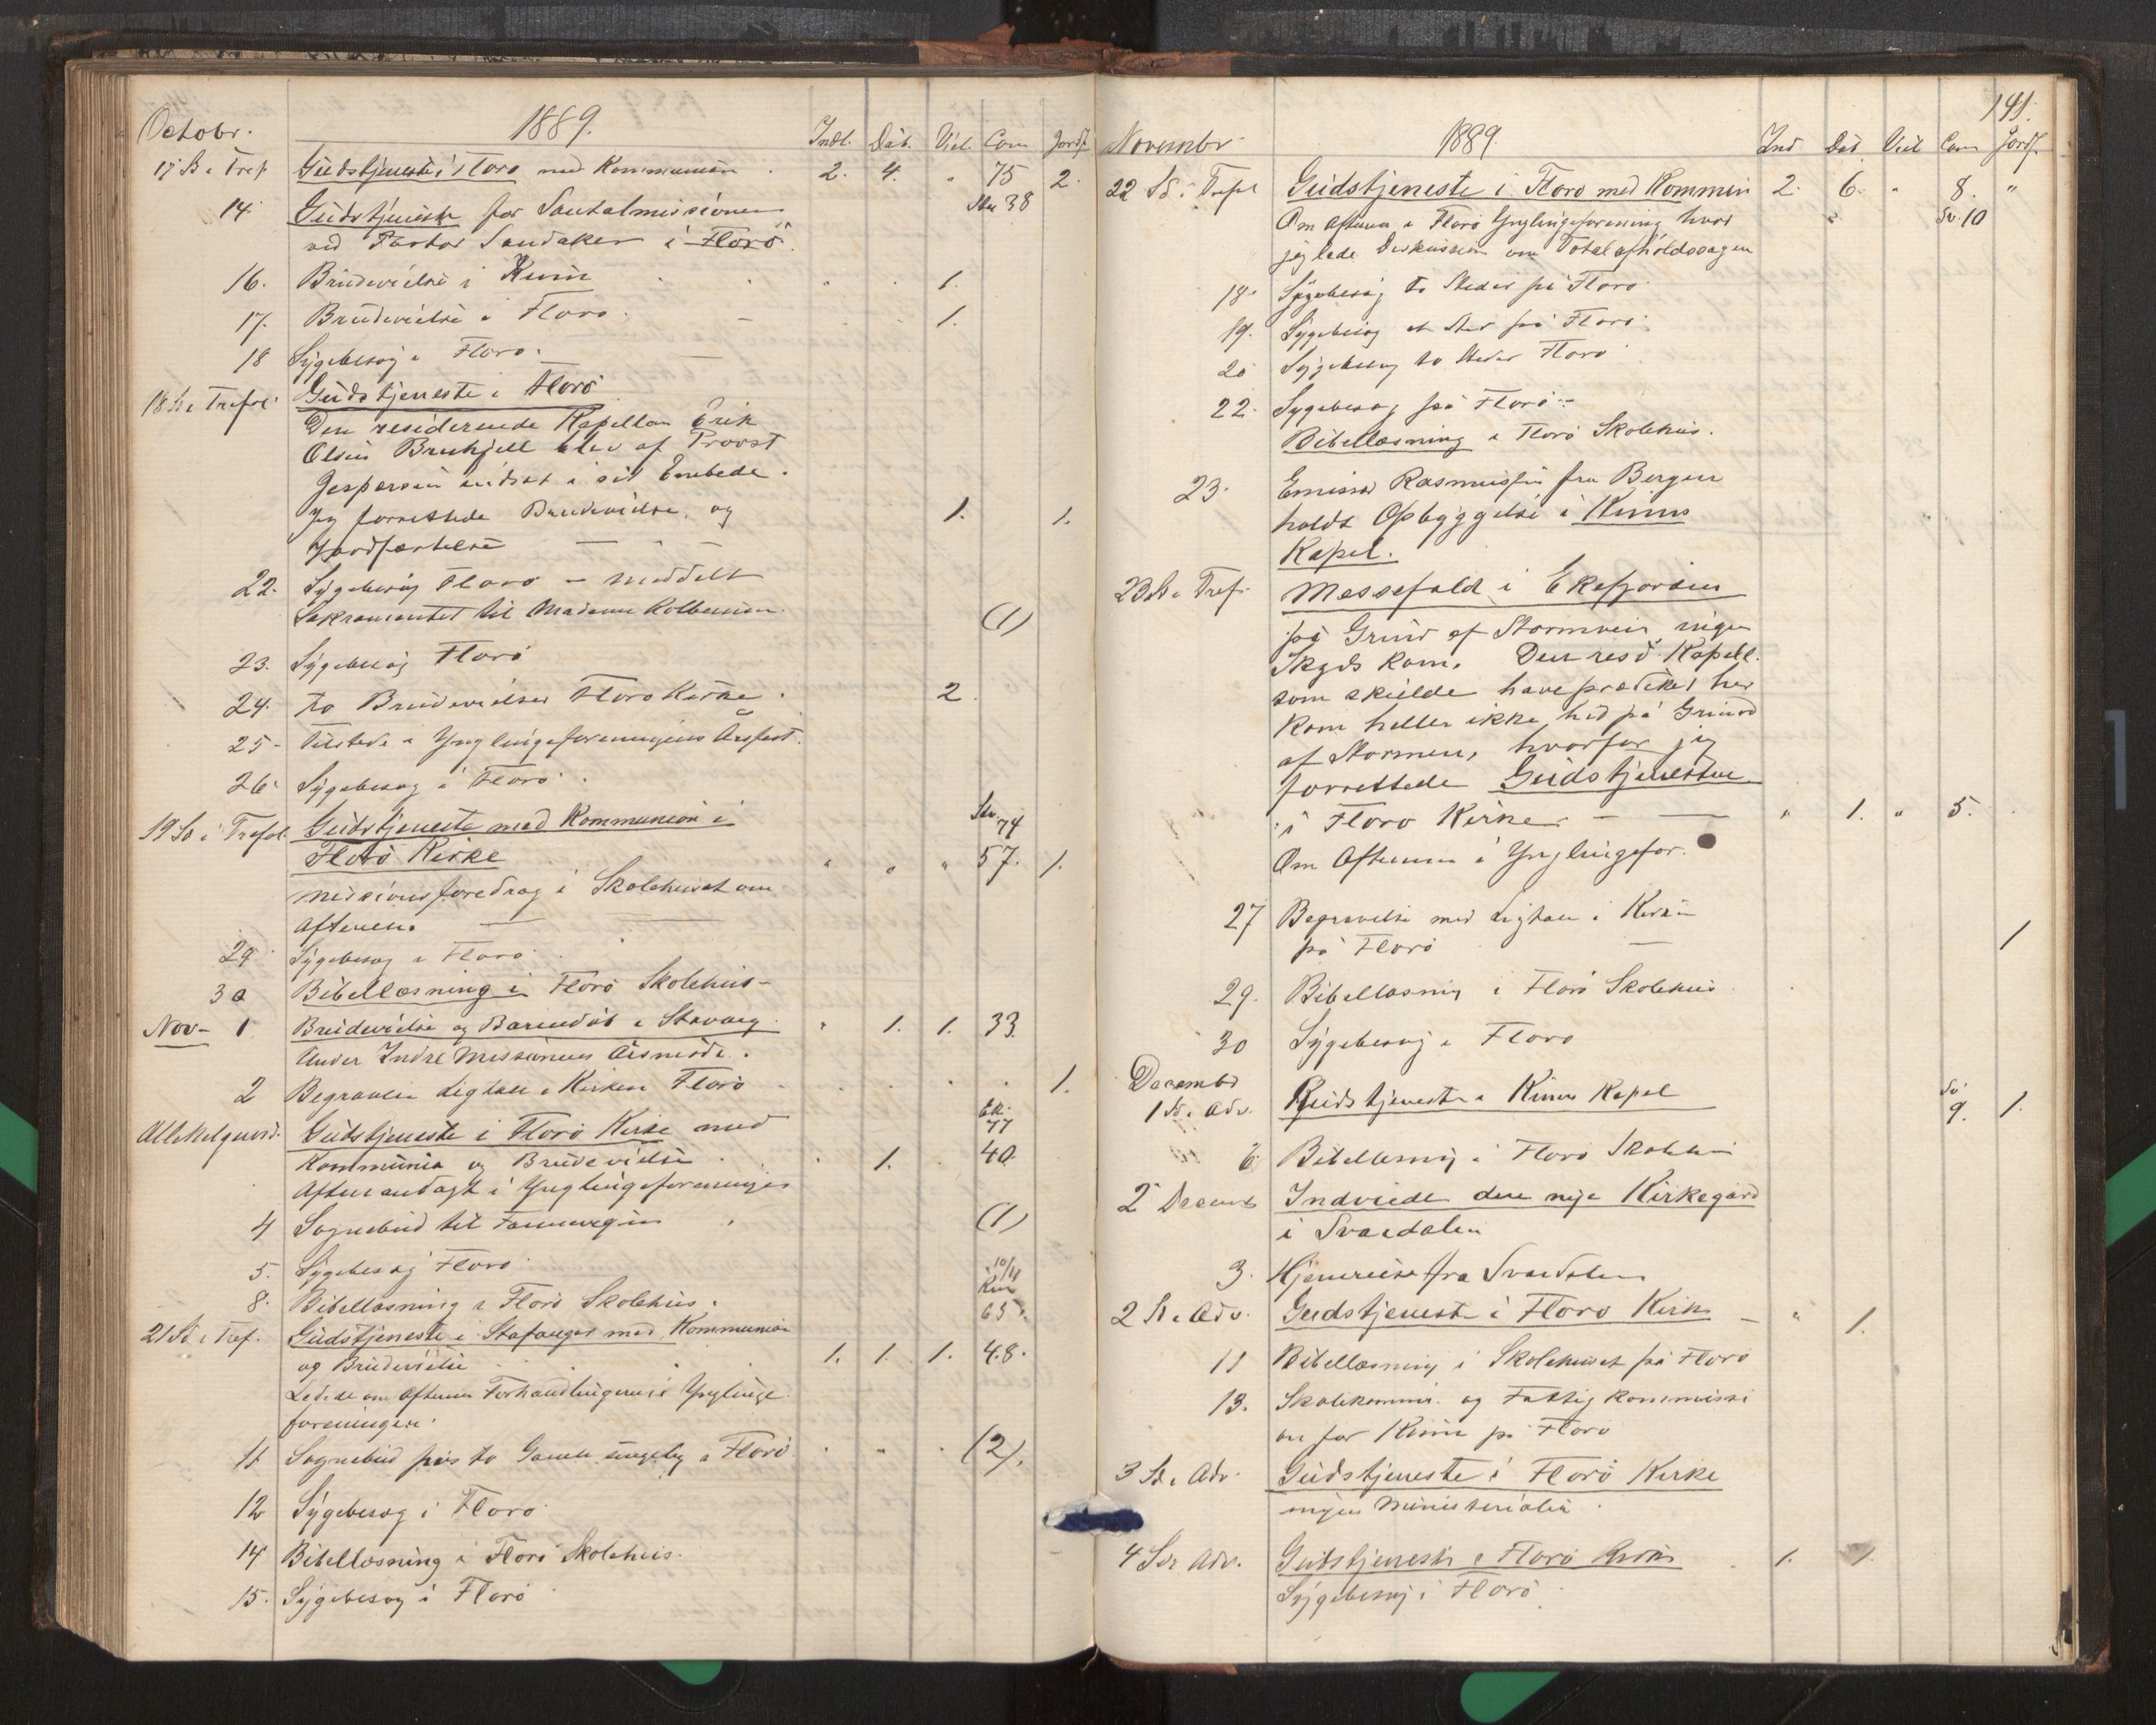 Octobr. 1889. Indl. Dåb. Viel. Com Jordf
17 S. e Tref Gudstjeneste i Florø med Kommunion 2. 4. " 75 2.
14. Gudstjeneste for Santalmissionen 38
ved Pastor Sandaker i Florø.
16. Brudevielse i Kinn 1.
17. Brudevielse i Florø. 1.
18 Sygebesøg i Florø.
18 S. e Trefol. Gudstjeneste i Florø
Den residerende Kapellan Erik
Olsen Brekjell blev af Provst
Jespersen indsat i sit Embede.
Jeg forrettede Brudevielse og 1. 1.
Jordfæstelse
22. Sygebesøg Florø – meddelt
Sakramentet til Madame Kolbensen. (1)
23. Sygebesøg Florø
24. to Brudevielser Florø Kirke. 2
25 – Tilstede i Ynglingeforeningens Årsfest.
26. Sygebesøg i Florø.
19 S. e Trefol. Gudstjeneste med Kommunion i 74
Florø Kirke " " " 57. 1.
Missionsforedrag i Skolehuset om
aftenen.
29 Sygebesøg i Florø
30 Bibellæsning i Florø Skolehus –
Nov – 1 Brudevielse og Barnedåb i Stavang. " 1. 1. 33.
Under Indre Missionens Årsmøde.
2 Begravelse Ligtale i Kirken Florø 1.
Allehelgensd. Gudstjeneste i Florø Kirke med 77
Kommunion og Brudevielse 1. 40
Aftenandagt i Ynglingeforeningen
4 Sognebud til (1)
5. Sygebesøg Florø 10/11
8. Bibellæsning i Florø Skolehus. 65.
21 S. e Tref. Gudstjeneste i Stafanger med Kommunion
og Brudevielse 1. 1. 1. 48.
Ledede om aftenen Forhandlingerne i Ynglinge
foreningen.
11 Sognebud hos to Gamle i Florø (2).
12 Sygebesøg i Florø
14 Bibellæsning i Florø Skolehus.
15. Sygebesøg i Florø
141.
Novembr 1889. Ind Dåb Viel Com Jordf.
22 S. e. Trefol Gudstjeneste i Florø med Kommun 2. 6. " 8. "
Om Aftenen i Florø Ynglingeforening hvor Sv. 10
jeg lede Diskussion om Totalafholdssagen
18. Sygebesøg to Steder på Florø
19. Sygebesøg et Sted på Florø
20 Sygebesøg to Steder Florø
22. Sygebesøg på Florø –
Bibellæsning i Florø Skolehus.
23. Emissær Rasmussen fra Bergen
holdt Opbyggelse i Kinns
Kapel.
23 S. e Tref. Messefald i Eikefjorden
på Grund af Stormveir ingen
Skyds kom. Den resd. Kapell.
som skulde have prædiket her
kom heller ikke hid på Grund
af Stormen, hvorfor jeg
forrettede Gudstjenesten
i Florø Kirke – " 1. " 5.
Om Aftenen i Ynglingefor.
27 Begravelse med Ligtale i Kirken
på Florø 1
29. Bibellæsning i Florø Skolehus
30 Sygebesøg i Florø
Decembr
1 S. i Adv. Gudstjeneste i Kinns Kapel 9. 1.
6 Bibellæsning i Florø Skolehus
2 Decemb Indviede den nye Kirkegård
i Svardalen
3. Hjemreise fra Svardalen
2 S. i Adv. Gudstjeneste i Florø Kirke – " 1.
11 Bibellæsning i Skolehuset på Florø
13. Skolekommis. og Fattigkommissi
on for Kinn på Florø
3 S. i Adv. Gudstjeneste i Florø Kirke
ingen Ministerialia.
4 S. i Adv. Gudstjeneste i Florø Kirke 1. 1.
Sygebesøg i Florø.